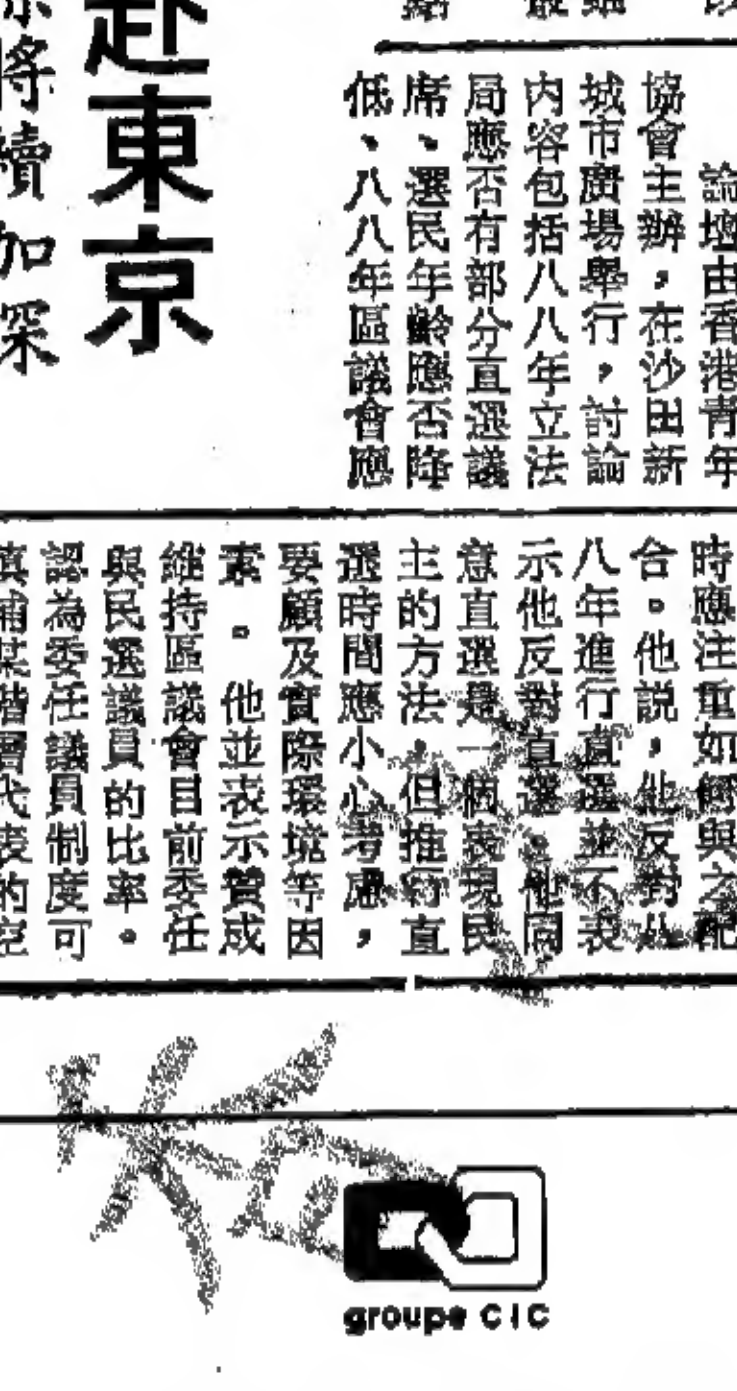 赴東京
將續加深
論壇由香港青年
協會主辦，在沙田新
城市廣場舉行，討論
內容包括八八年立法
局應否有部分直選議
席、選民年齡應否降
低、八八年區議會應
時應注重如何與之配
合。他說，他反對八
八年進行直選並不表
示他反對直選。他同
意直選是一個表現民
主的方法，但推行直
選時間應小心考慮，
要顧及實際環境等因
素。他並表示贊成
維持區議會目前委任
與民選議員的比率。
認為委任議員制度可
填補某階層代表的空
groupe CIC